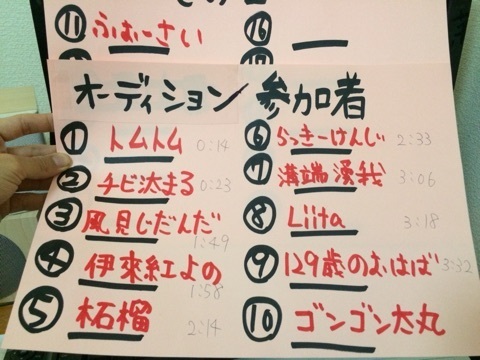 ⑪ ふぉーさい
⑯
オーディション 参加者
① トムトム 0:14
② チビ汰まる 0:23
③ 風見じだんだ 1:49
④ 伊來紅よの 1:58
⑤ 柘榴 2:14
⑥ らっきーけんじ 2:33
⑦ 溝端湧我 3:06
⑧ Liita 3:18
⑨ 129歳のおばば 3:32
⑩ ゴンゴン大丸